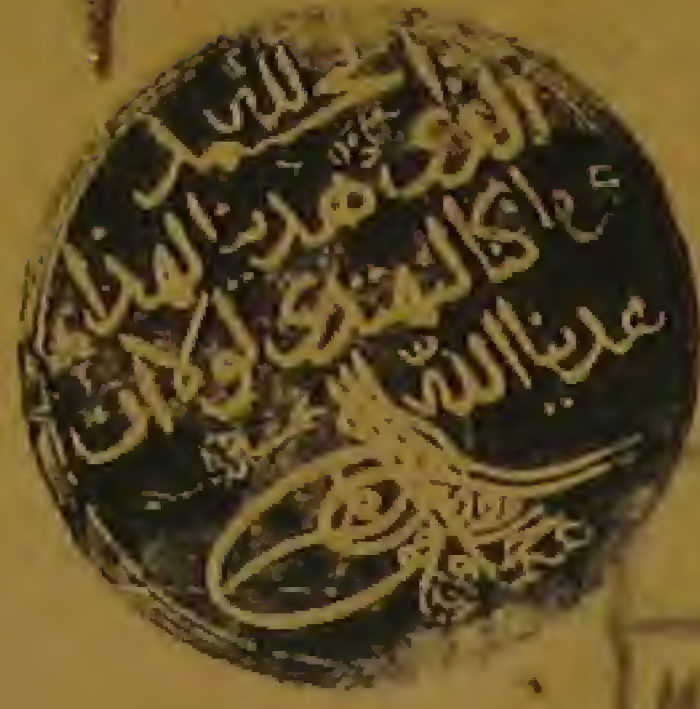 الحمد لله
الذي هدينا لهذا
وما كنا لنهتدى لولا ان
هدينا الله